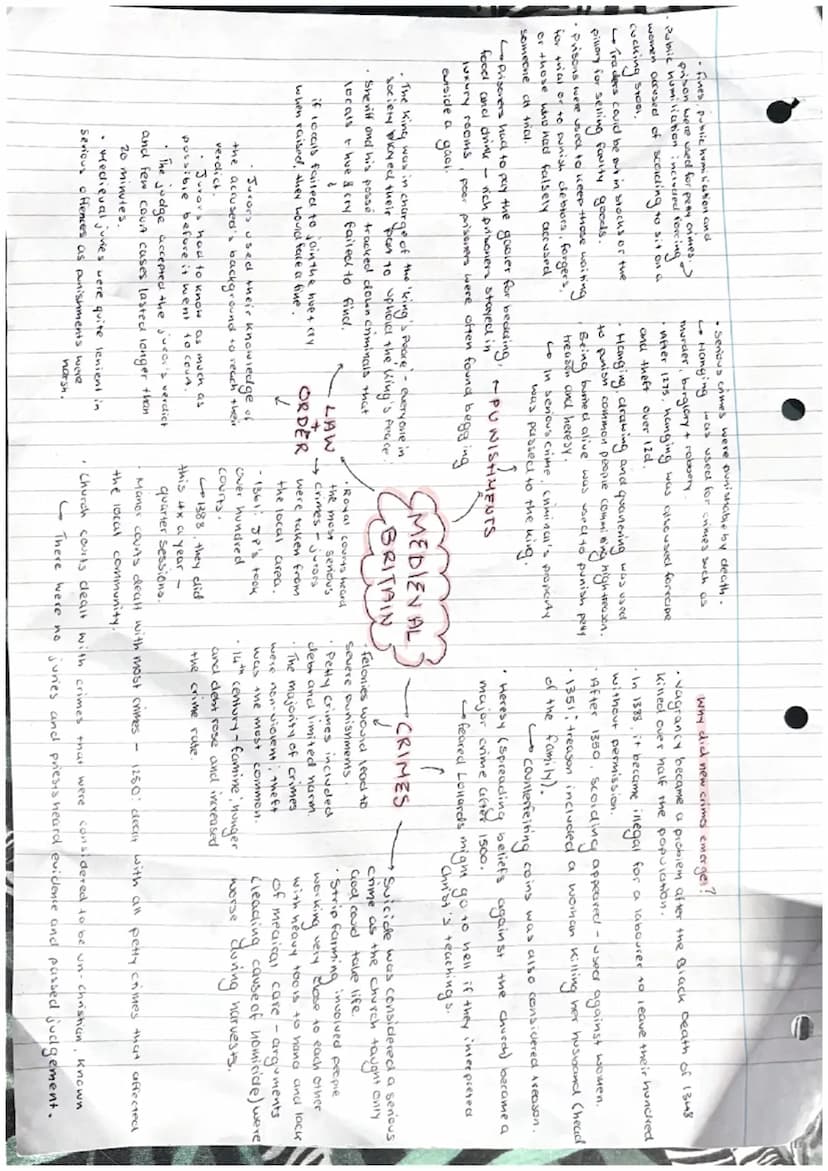 · Fines, public humiliation and
prison were used for petty crimes.
· Public humiliation included forcing
women accused of scolding to sit on a
cucking stool.
↳ Traders could be put in stocks or the
pillory for selling faulty goods.
· Prisons were used to keep those waiting
for trial or to punish debtors, forgers,
or those who had falsely accused
someone at trial.
↳ Prisoners had to pay the gaoler for bedding,
food and drink - rich prisoners stayed in
luxury rooms, poor prisoners were often found begging
outside a gaol.
· Serious crimes were punishable by death.
↳ Hanging was used for crimes such as
murder, burglary + robbery.
· After 1275, hanging was also used for rape
and theft over 12d.
· Hanging, drawing and quartering was used
to punish common people committing high treason.
· Being burned alive was used to punish petty
treason and heresy.
↳ In serious crime, criminal's property
was passed to the king.
PUNISHMENTS
Why did new crimes emerge?
· Vagrancy became a problem after the Black Death of 1348
killed over half the population.
· In 1388, it became illegal for a labourer to leave their hundred
without permission.
· After 1350, scolding appeared - used against women.
· 1351: treason included a woman killing her husband (head
of the family).
↳ Counterfeiting coins was also considered treason.
· Heresy (spreading beliefs against the church) became a
major crime after 1500.
↳ feared Lollards might go to hell if they interpreted
Christ's teachings.
MEDIEVAL
BRITAIN
· The king was in charge of the 'king's peace' - everyone in
society played their part to uphold the king's peace
· Sheriff and his posse tracked down criminals that
locals + hue & cry failed to find.
if locals failed to join the hue + cry
when raised, they would face a fine.
LAW
+
ORDER
· Jurors used their knowledge of
the accused's background to reach their
verdict.
· Jurors had to know as much as
possible before it went to court.
· The judge accepted the juror's verdict
and few court cases lasted longer than
20 minutes.
· Medieval juries were quite lenient in
serious offences as punishments were
harsh.
· Royal courts heard
the most serious
crimes - jurors
were taken from
the local area.
· 1361: JP's took
over hundred
courts.
↳ 1388, they did
this 4x a year -
quarter sessions.
· Manor courts dealt with most crimes - 1250: dealt with all petty crimes that affected
the local community.
· Church courts dealt with crimes that were considered to be un-christian, known
↳ There were no juries and priests heard evidence and passed judgement.
CRIMES
· Felonies would lead to
severe punishments.
· Petty crimes included
debt and limited harm.
· The majority of crimes
were non-violent; theft
was the most common.
· 14th century - famine; hunger
and debt rose and increased
the crime rate.
Suicide was considered a serious
crime as the church taught only
God could take life.
· Strip farming involved people
working very close to each other
with heavy tools to hand and lack
of medical care - arguments
(leading cause of homicide) were
worse during harvests.